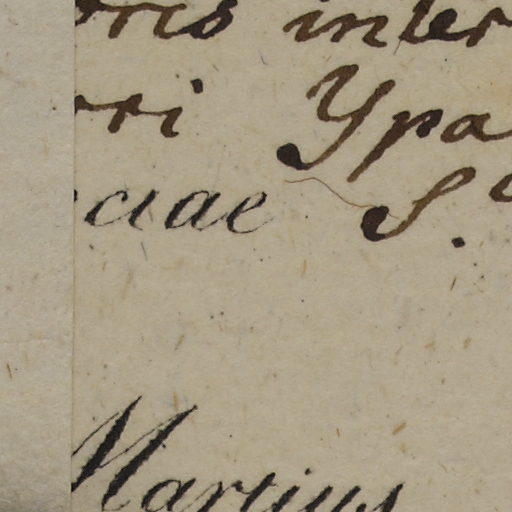 oris inter
rri Ypa
ciae S.
Martius